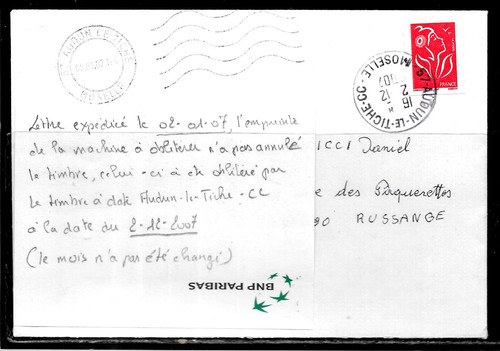 57 AUDUN LE TICHE
MOSELLE
57 AUDUN-LE-TICHE-CC
16 H
2 - 12
2007
MOSELLE
FRANCE
Lettre expédiée le 02-01-07, l'empreinte
de la machine à oblitérer n'a pas annulé
le timbre, celui-ci a été oblitéré par
le timbre à date Audun-le-Tiche-CC
à la date du 2-12-2007
(le mois n'a pas été changé)
ICCI Daniel
e des Pâquerettes
90 RUSSANGE
BNP PARIBAS